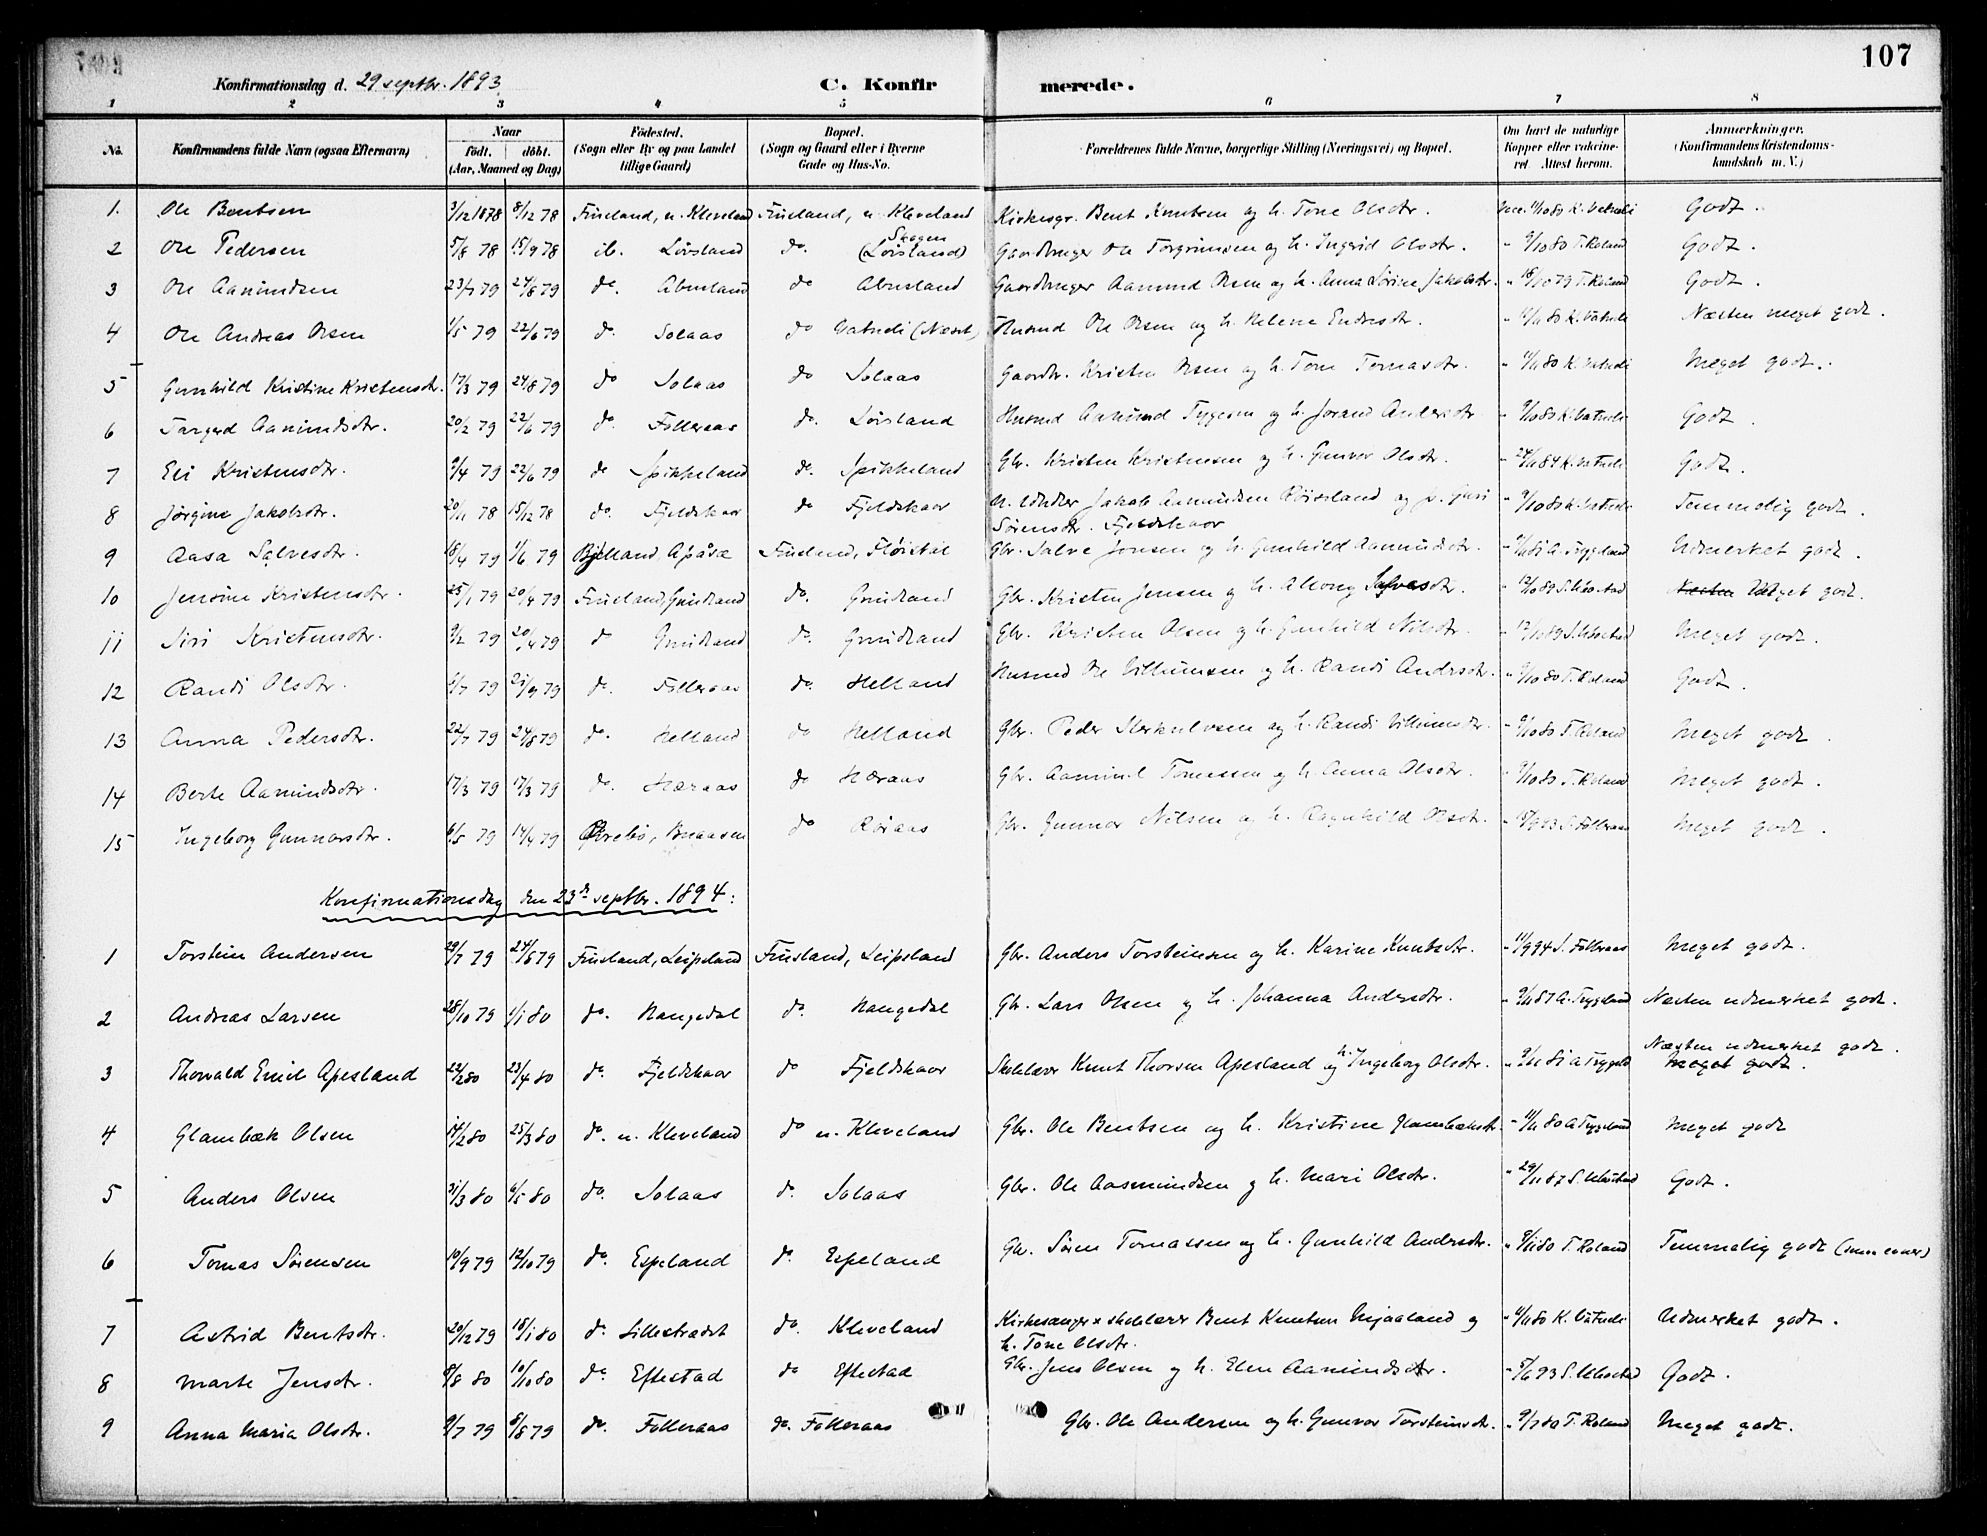 107
Konfirmationsdag d. 29 septbr. 1893
C. Konfirmerede.
1 2 3 4 5 6 7 8
No. Konfirmandens fulde Navn (ogsaa Efternavn) Naar födt. döbt. (Aar, Maaned og Dag) Födested. (Sogn eller By og paa Landet tillige Gaard) Bopæl. (Sogn og Gaard eller i Byerne Gade og Hus-No. Forældrenes fulde Navne, borgerlige Stilling (Næringsvei) og Bopæl. Om havt de naturlige Kopper eller vakcineret. Attest herom. Anmærkninger. (Konfirmandens Kristendomskundskab m. V.)
1. Ole Bentsen 3/12 1878 8/12 78 Finsland, n. Kleveland Finsland, n. Kleveland Kirkesgr. Bent Knutsen og h. Tone Olsdtr. Vacc. 11/10 80 K. Vatneli Godt.
2 Ole Pedersen 5/8 78 15/9 78 ib. Lövsland do. Skogen (Lövsland) Gaardbruger Ole Torgrimsen og h. Ingerid Olsdtr. " 9/10 80 T. Roland Godt.
3 Ole Aanundsen 23/7 79 24/8 79 do. Abusland do Abusland Gaardbruger Aanund Olsen og h. Anna Sörine Jakobsdtr. " 18/10 79 T. Roland Godt.
4 Ole Andreas Olsen 1/5 79 22/6 79 do. Solaas do Vatneli (Næset) Husmd Ole Olsen og h. Helene Endresdtr. " 11/11 80 K. Vatneli Næsten meget godt.
5 Gunhild Kristine Kristensdtr. 17/3 79 24/8 79 do Solaas do Solaas Gaardbr. Kristen Olsen og h. Tone Tomasdtr. " 11/11 80 K. Vatneli Meget godt.
6 Targerd Aanundsdtr. 20/2 79 22/6 79 do. Folleraas do. Lövsland Husmd Aanund Tygesen og h. Jorand Andersdtr " 9/10 80 K. Vatneli Godt.
7 Eli Kristensdtr. 9/4 79 22/6 79 do Spikkeland do. Spikkeland Gbr. Kristen Kristensen og h. Gunvor Olsdtr. " 24/11 84 K. Vatneli Godt.
8 Jörgine Jakobsdtr. 20/11 78 15/12 78 do. Fjeldskaar do Fjeldskaar Jakob Aanundsen Röisland og p. Guri Sörensdtr. Fjeldskaar " 9/10 80 K. Vatneli Temmelig godt.
9 Aasa Salvesdtr. 18/4 79 1/6 79 Bjelland, Apåsæ Finsland, Flöistöl Gbr. Salve Jonsen og h. Gunhild Aanundsdtr. A. Tryggland Udmerket godt.
10 Jensine Kristensdtr. 25/1 79 20/4 79 Finsland, Gniidland do. Gniidland Gbr. Kristen Jensen og h. Alborg Salvesdtr. Næsten Meget godt.
11 Siri Kristensdtr. 9/2 79 20/4 79 do Gniidland do. Gniidland Gbr. Kristen Olsen og h. Gunhild Nilsdtr. Meget godt.
12 Randi Olsdtr. 2/7 79 21/9 79 do. Folleraas do. Helland Husmd Ole Villumsen og h. Randi Andersdtr. " 9/10 80 T. Roland Godt.
13 Anna Pedersdtr. 22/7 79 24/8 79 do. Helland do Helland Gbr. Peder Herkulvsen og h. Randi Villumsdtr. " 9/10 80 T. Roland Meget godt.
14 Berte Aanundsdtr. 17/3 79 do. Haraas do Haraas Gbr. Aanund Tomassen og h. Anna Olsdtr. " 9/10 80 T. Roland Meget godt.
15 Ingeborg Gunnarsdtr. 6/5 79 Övrebö, do Röiaas Gbr. Gunnar Nilsen og h. Ragnhild Olsdtr. S. Folleraas Meget godt.
Konfirmationsdag den 23de septbr. 1894:
1 Torstein Andersen 29/7 79 24/8 79 Finsland, Leipsland Finsland, Leipsland Gbr. Anders Torsteinsen og h. Karine Knutsdtr. " 11/9 94 S. Folleraas Meget godt.
2 Andreas Larsen 28/10 79 1/1 80 do. Haugedal do. Haugedal Gbr. Lars Olsen og h. Johanna Andersdtr. " 9/11 87 A. Tryggland Næsten udmerket godt.
3 Thorvald Emil Apesland 22/2 80 23/4 80 do. Fjeldskaar do Fjeldskaar Skolelærer Knut Thorsen Apesland og h. Ingeborg Olsdtr. Næsten udmerket godt. Meget godt.
4 Glambæk Olsen 14/2 80 25/3 80 do. n. Kleveland do n. Kleveland Gbr. Ole Bentsen og h. Kristine Glambæksdtr. " 11/11 80 A. Tryggland Meget godt
5 Anders Olsen 21/3 80 6/5 80 do. Solaas do. Solaas Gbr. Ole Aasmundsen og h. Mari Olsdtr. Godt.
6 Tomas Sörensen 10/9 79 12/10 79 do. Espeland do. Espeland Gbr. Sören Tomassen og h. Gunhild Andersdtr. " 9/11 80 T. Roland Temmelig godt
7 Astrid Bentsdtr. 20/12 79 18/1 80 do. Lillestrædet do. Kleveland Kirkesanger x skolelærer Bent Knutsen Mjaaland og h. Tone Olsdtr. " 11/11 80 K. Vatneli Udmerket godt.
8 Marte Jensdtr. 8/8 80 10/10 80 do. Eftestad do Eftestad Gbr. Jens Olsen og h. Elen Aanundsdtr. Godt.
9 Anna Maria Olsdtr. 9/7 79 8/8 79 do. Folleraas do. Folleraas Gbr. Ole Andersen og h. Gunvor Torsteinsdtr. " 9/7 80 T. Roland Meget godt.